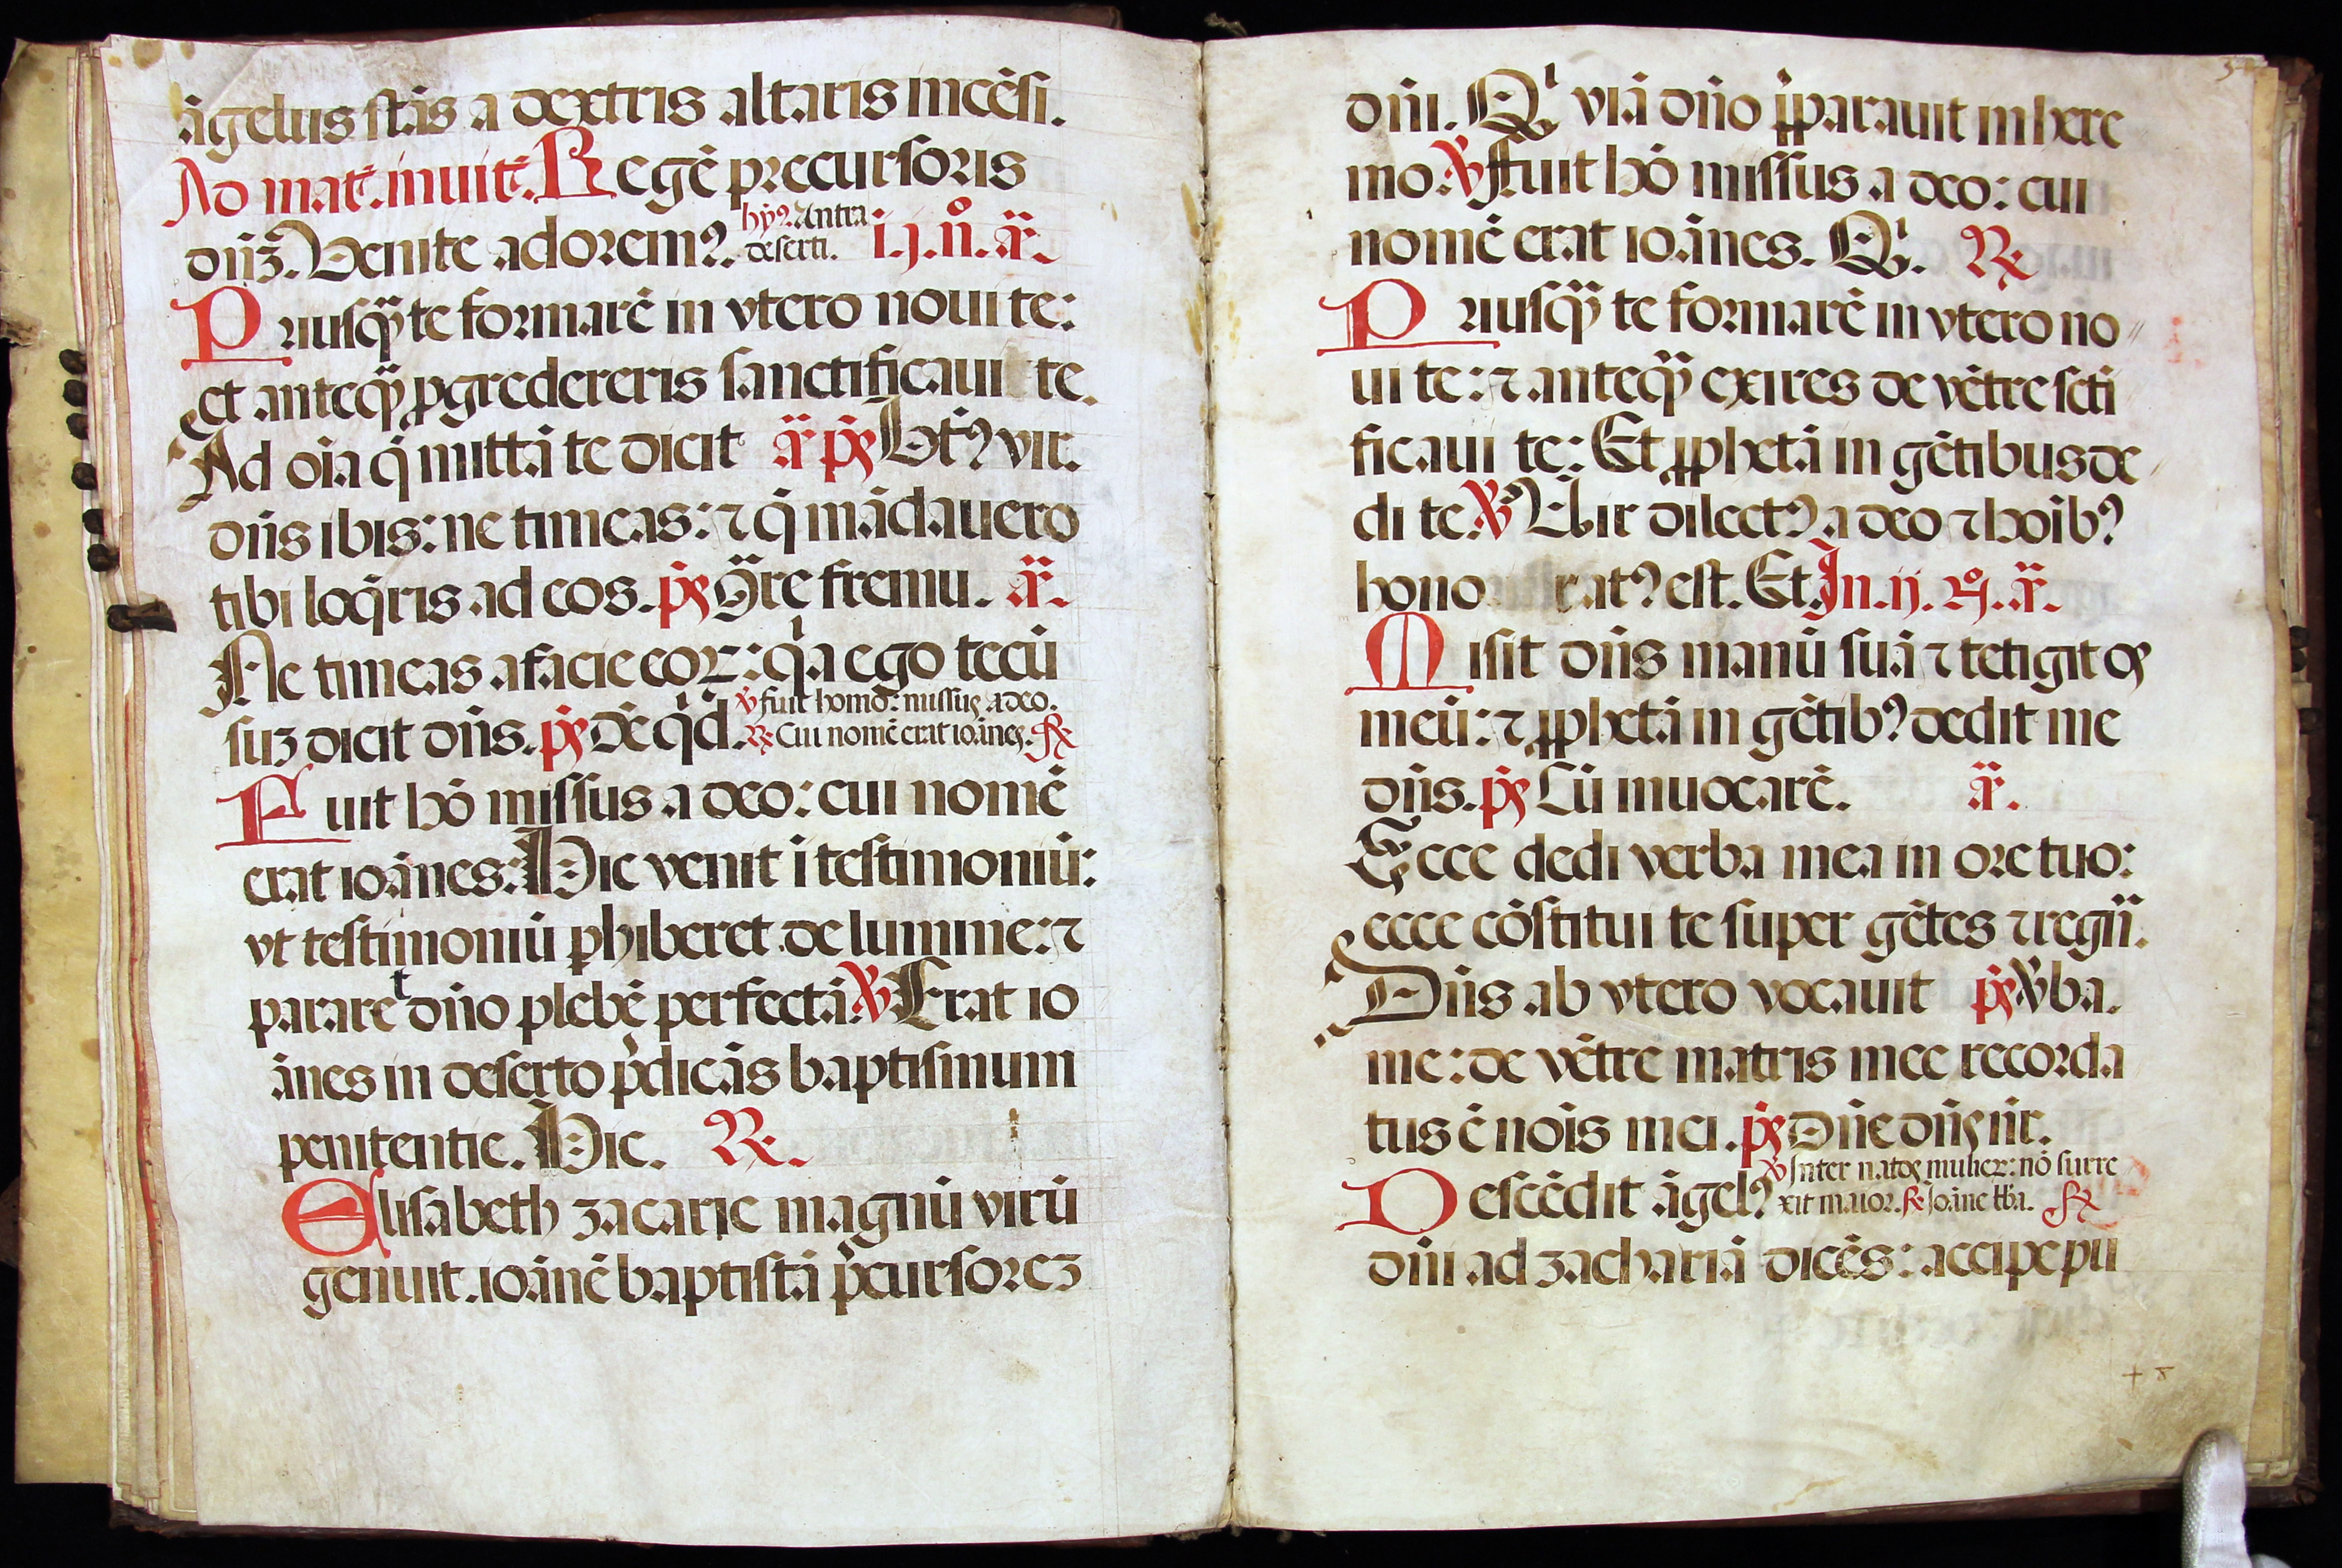 āgelus stās a dextris altaris incēsi.
Ad mat̄. inuit̄. Regē precursoris
dn̄ꝫ. Venite adoremꝰ. hỹꝰ. Antra
deserti. i. j. n̊. añ.
Priusq̃ te formarē in vtero noui te:
et anteq̃ ꝓgredereris sanctificaui te.
Ad oīa q̄ mittā te dicit añ p̄s Btꝰ vir.
dn̄s ibis: ne timeas: ⁊ q̄ mādauero
tibi loq̄ris ad eos. p̄s Q̃re fremu. añ.
Ne timeas a facie eoꝝ: qͥa ego tecū
suꝫ dicit dn̄s. p̄s Dē q̄d. ℣ fuit homo: missus a deo.
℟ Cui nomē erat ioānes.
Fuit hō missus a deo: cui nomē
erat ioānes: Hic venit ī testimoniū:
vt testimoniū ꝑhiberet de lumine: ⁊
pararet dn̄o plebē perfectā. ℣ Erat io
ānes in deserto p̄dicās baptismum
penitentie. Hic. ℟.
Elisabeth zacarie magnū virū
genuit. ioānē baptistā p̄cursoreꝫ
dn̄i. Qͥ viā dn̄o p̄parauit in here
mo. ℣ Fuit hō missus a deo: cui
nomē erat ioānes. Qͥ. ℟
Priusq̃ te formarē in vtero no
ui te: ⁊ anteq̃ exires de vētre scti
ficaui te: Et ꝓphetā in gētibus de
di te. ℣ Vir dilectꝰ a deo ⁊ hoībꝰ
honoratꝰ est. Et. In. ij. n̊. añ.
Misit dn̄s manū suā ⁊ tetigit os
meū: ⁊ ꝓphetā in gētibꝰ dedit me
dn̄s. p̄s Cū inuocarē. añ.
Ecce dedi verba mea in ore tuo:
ecce cōstitui te super gētes ⁊ regn̄.
Dn̄s ab vtero vocauit p̄s v̄ba.
me: de vētre matris mee recorda
tus ē nois mei. p̄s Dn̄e dn̄s nr̄.
℣ Inter natos mulieꝝ: nō surre
Descēdit āgelꝰ xit maior. ioāne bb̄a.
dn̄i ad zachariā dicēs: accipe pu